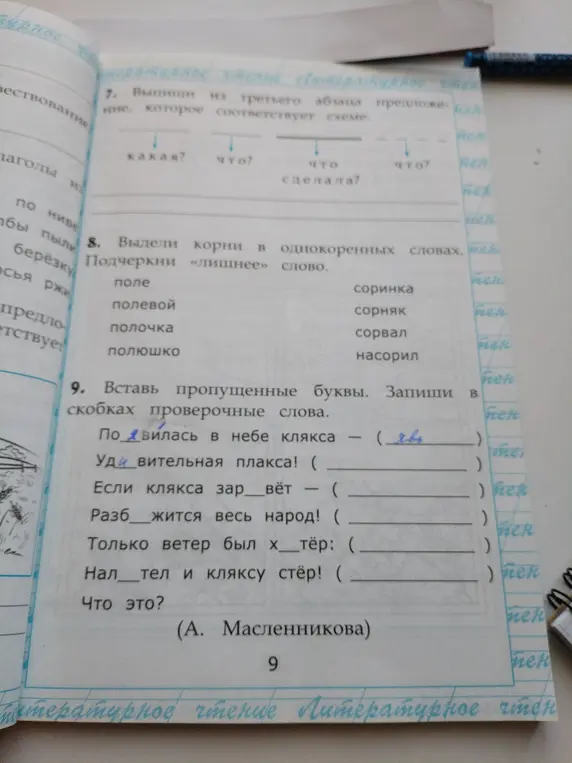 литературное чтение Литературное чтен
7. Выпиши из третьего абзаца предложе-
ние, которое соответствует схеме.
какая? что? что что?
сделала?
8. Выдели корни в однокоренных словах.
Подчеркни «лишнее» слово.
поле соринка
полевой сорняк
полочка сорвал
полюшко насорил
9. Вставь пропущенные буквы. Запиши в
скобках проверочные слова.
По_я_вилась в небе клякса — ( явь )
Уд_и_вительная плакса! ( ______ )
Если клякса зар__вёт — ( ______ )
Разб__жится весь народ! ( ______ )
Только ветер был х__тёр: ( ______ )
Нал__тел и кляксу стёр! ( ______ )
Что это?
(А. Масленникова)
9
литературное чтение Литературное чтен